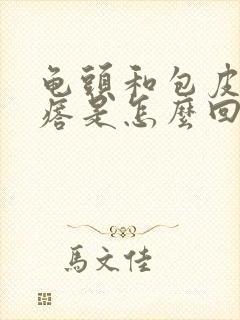 龟頭和包皮
痞是怎麼回
馬文佳